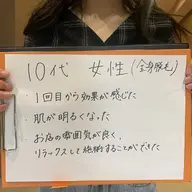 10代 女性(全身脱毛)
1回目から効果が感じた
肌が明るくなった
お店の雰囲気が良く、
リラックスして施術することができた